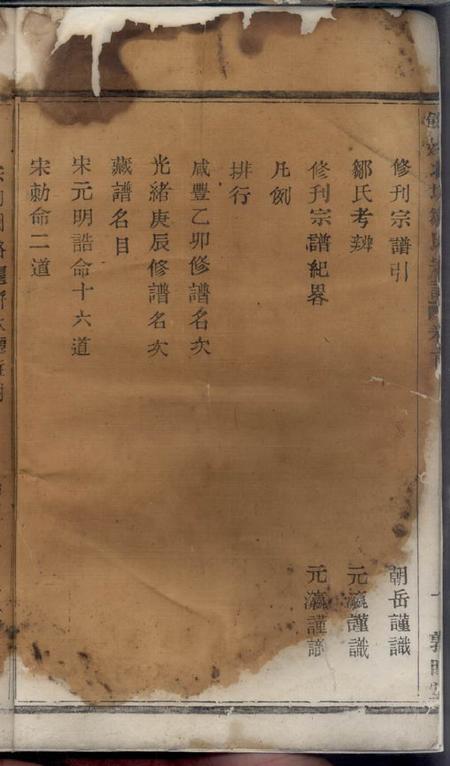 修刊宗譜引 朝岳謹識
鄒氏考辨 元瀛謹識
修刊宗譜紀畧 元瀛謹識
凡例
排行
咸豐乙卯修譜名次
光緒庚辰修譜名次
藏譜名目
宋元明誥命十六道
宋勅命二道